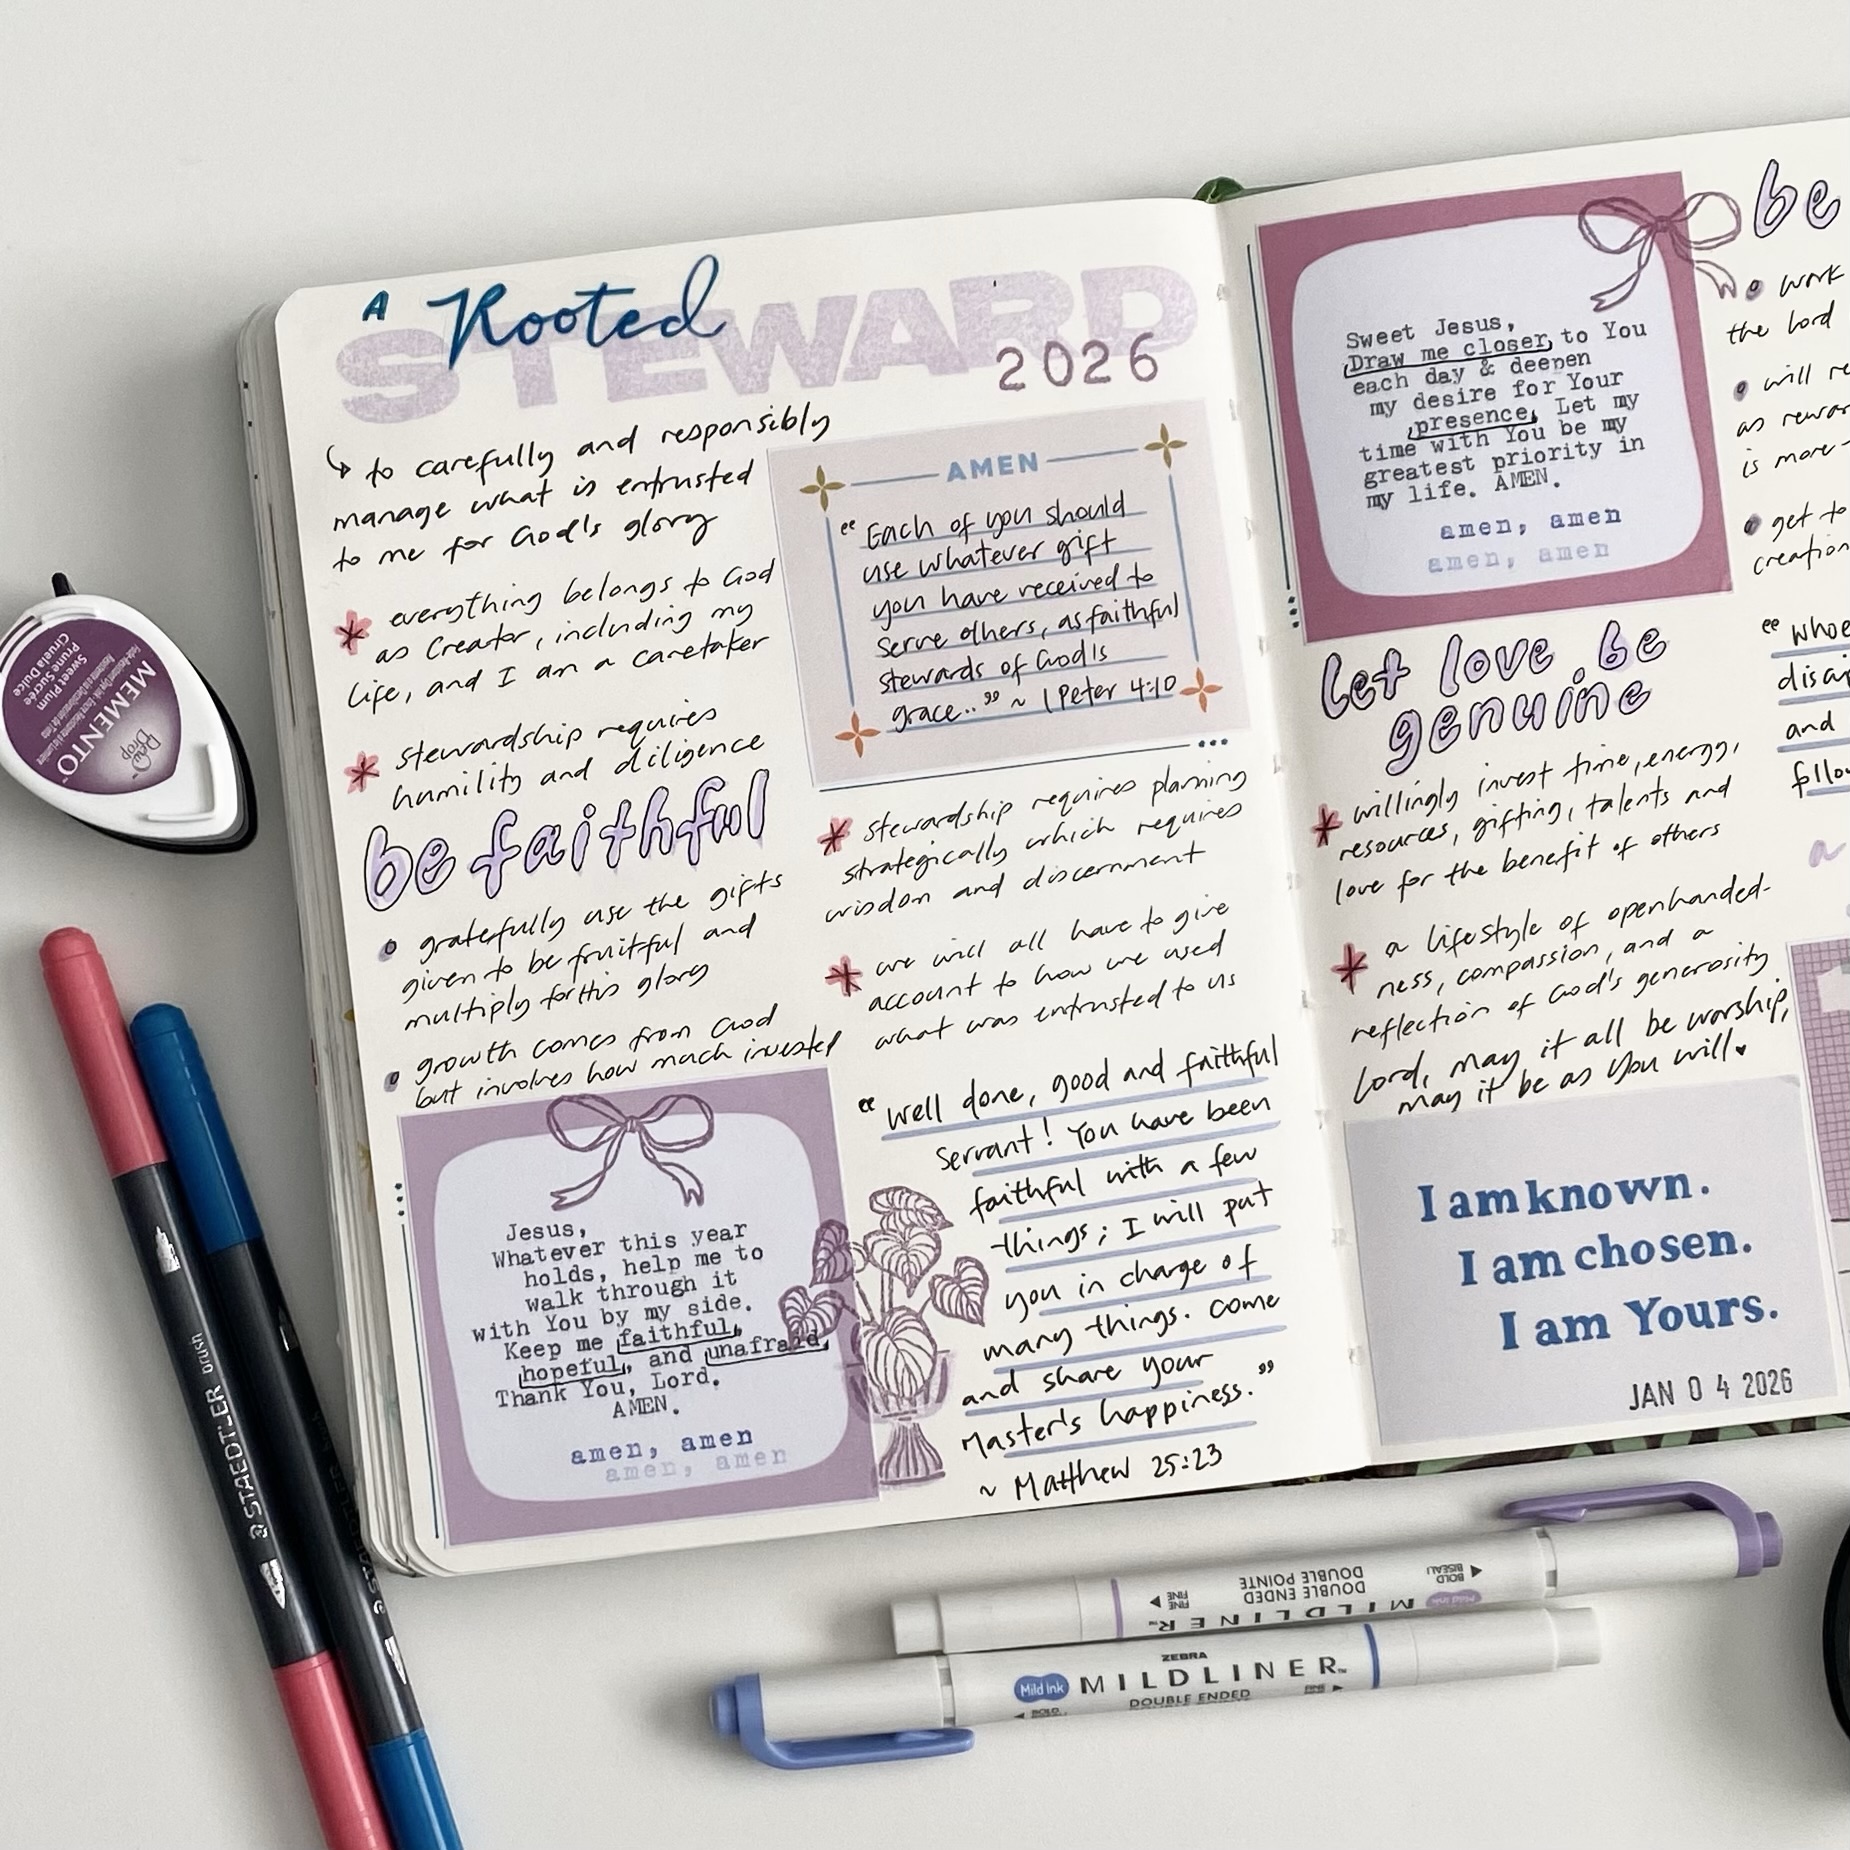 A Rooted
STEWARD
2026
to carefully and responsibly
manage what is entrusted
to me for God's glory
everything belongs to God
as Creator, including my
life, and I am a caretaker
stewardship requires
humility and diligence
be faithful
gratefully use the gifts
given to be fruitful and
multiply for His glory
growth comes from God
but involves how much invested
Jesus,
Whatever this year
holds, help me to
walk through it
with You by my side.
Keep me faithful,
hopeful, and unafraid.
Thank You, Lord.
AMEN.
amen, amen
amen, amen
AMEN
"Each of you should
use whatever gift
you have received to
serve others, as faithful
stewards of God's
grace.." ~ 1 Peter 4:10
stewardship requires planning
strategically which requires
wisdom and discernment
we will all have to give
account to how we used
what was entrusted to us
"Well done, good and faithful
servant! You have been
faithful with a few
things; I will put
you in charge of
many things. Come
and share your
Master's happiness."
~ Matthew 25:23
Sweet Jesus,
Draw me closer to You
each day & deepen
my desire for Your
presence. Let my
time with You be my
greatest priority in
my life. AMEN.
amen, amen
amen, amen
let love be
genuine
willingly invest time, energy,
resources, gifting, talents and
love for the benefit of others
a lifestyle of openhanded-
ness, compassion, and a
reflection of God's generosity
Lord, may it all be worship,
may it be as You will♥
I am known.
I am chosen.
I am Yours.
JAN 04 2026
be
work
the Lord
as
is more
get to
creation
"whoe
and
follo
a
MEMENTO™
Dew Drop
Sweet Plum
Prune Sucrée
Ciruela Dulce
STAEDTLER brush
MILDLINER™
Mild ink
DOUBLE ENDED
DOUBLE POINTE
FINE
BOLD
BISEAU
ZEBRA
Mild ink MILDLINER™
DOUBLE ENDED
BOLD
FINE